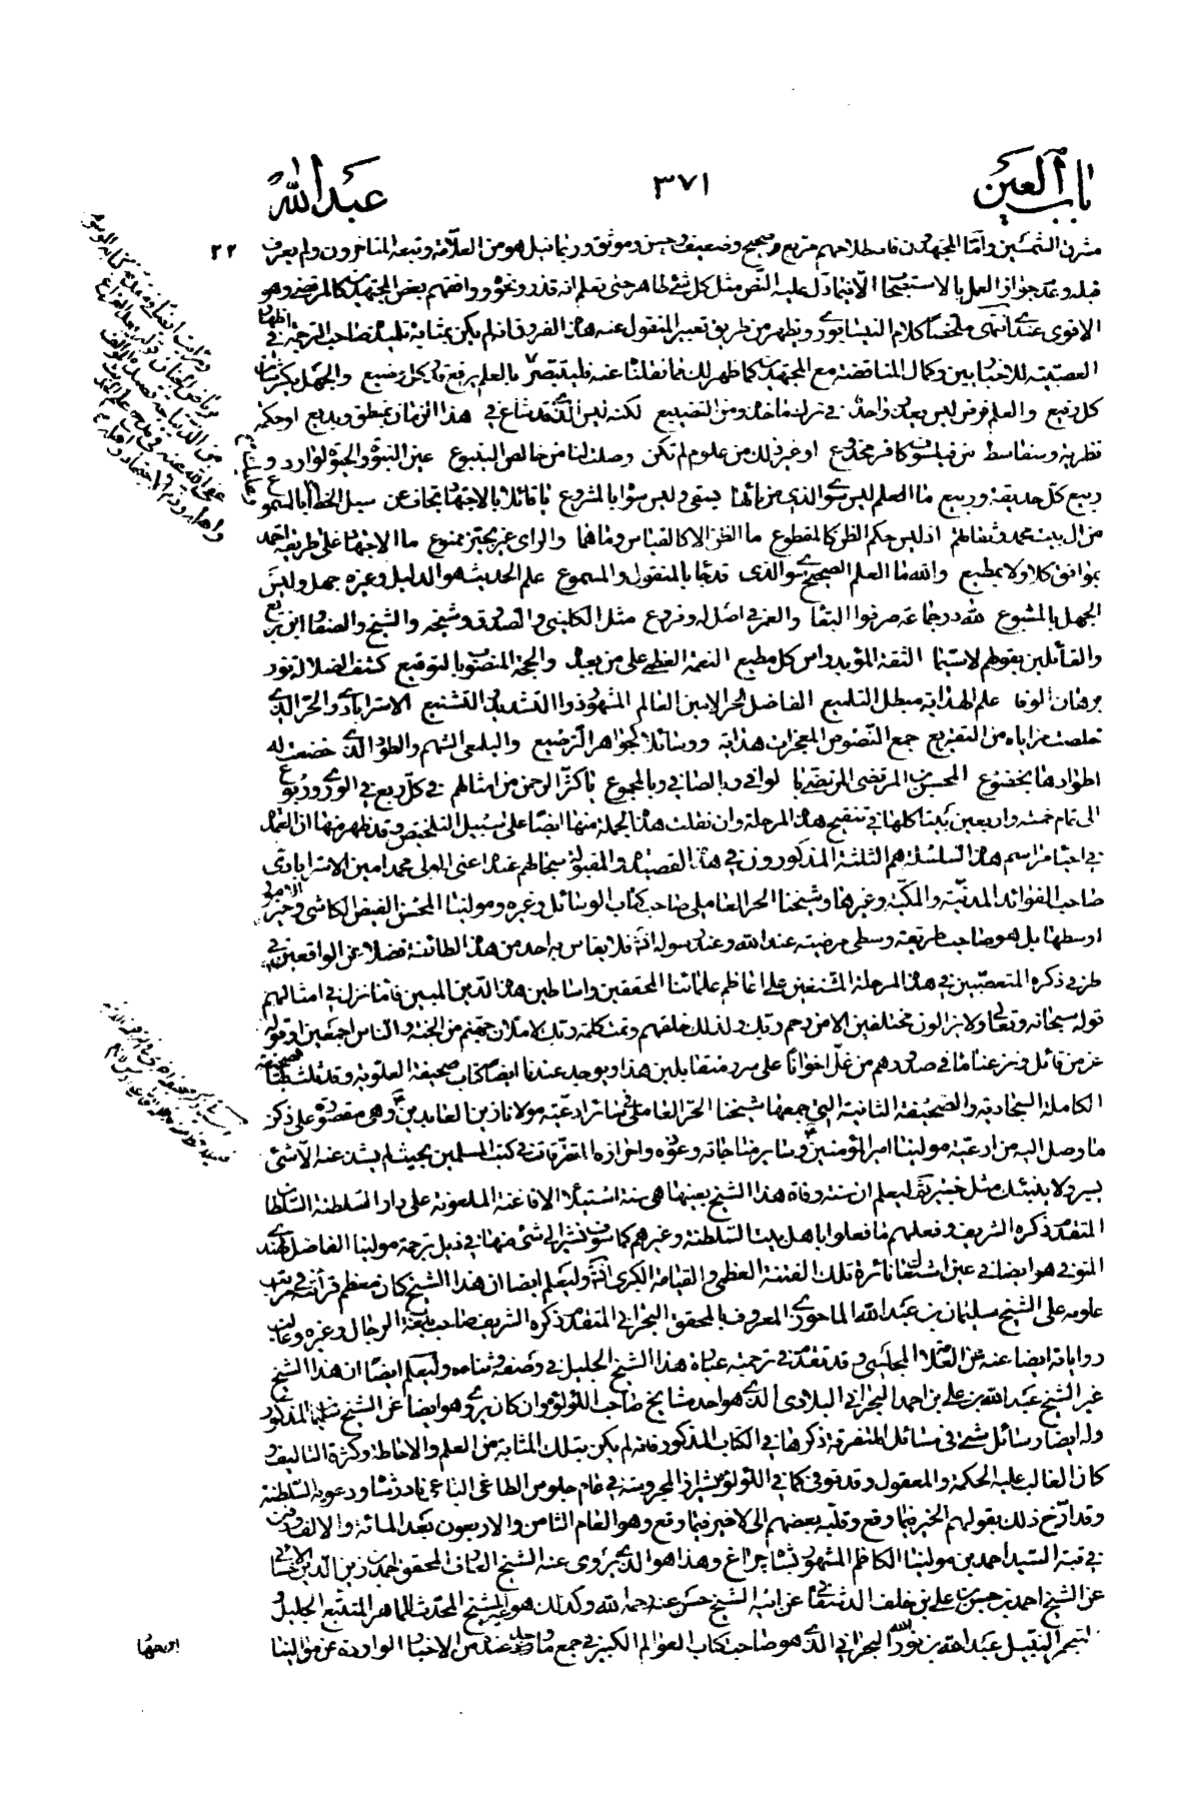 باب العين
٣٧١
عبد الله
٢٢
مشرق الشمسين وأما المجتهدون فاصطلاحهم مربع صحيح وضعيف وحسن وموثق وربما قيل هو من العلامة وتبعه المتأخرون ولم يعرف
قبله وعدم جواز العمل بالاستصحاب الا فيما دل عليه النص مثل كل شئ طاهر حتى تعلم انه قذر ونحوه ووافقهم بعض المجتهدين كالمرتضى وهو
الاقوى عندنا انتهى ملخصا كلام النيسابوري ويظهر من طريق تعبير المنقول عنه هذا الفروق انه لم يكن بمثابة تلميذه صاحب الترجمة في اظهار
العصبية للاخباريين وكمال المناقضة مع المجتهدين كما ظهر لك مما نقلنا عنه فليتبصر بالعلم يرفع قدر كل وضيع والجهل يكسر شان
كل رفيع والعلم فرض ليس يعذر واحد في ترك ماخذه ومن التضييع لكنه ليس الذي قد شاع في هذا الزمان بمنطق وبديع او حكمة
نظرية وسفاسط من فيلسوف كافر مخدوع او غير ذلك من علوم لم تكن وصلت لنا من خالص الينبوع عين النبوة والحبوة لوارد و
ربيع كل حديقة وربيع ما العلم ليس سوى الذي من بابها يبتغى وليس سواه بالمشروع يا قائلا بالاجتهاد تجاف عن سبل الخطا
من آل بيت محمد وثقاتهم اذ ليس حكم الظن كالمقطوع ما الظن الا كالقياس وما هما والراى غير محير ممنوع ما الاجتهاد على طريقة احمد
بموافق كلا ولا بمطيع والله ما العلم الصحيح سوى الذي قد جا بالمنقول والمسموع علم الحديث هو الدليل وغيره جهل وليس
الجهل بالمتبوع لله در جماعة صرفوا البقا والعمر في اصل له وفروع مثل الكليني والصدوق وشيخه والشيخ والصفار ابن بزيع
والقائلين بقولهم لاسيما الثقة المؤيد راس كل مطيع النعمة العظمى على من بعده والحجة المنصوب بالتوقيع كشف الضلالة نور
برهان الوفا علم الهداية مبطل التلميع الفاضل الحر الامين العالم المشهور ذو التشديد والتشنيع الاسترابادي والحر الذي
خلصت مزاياه من التقريع جمع النصوص المعجزات هداية ووسائلا كجواهر الترصيع والبلمعى الشهم والطود الذي خضعت له
اطوادها بخضوع المحسن المرتضى المرتضى بالوافي وبالصافي وبالمجموع يا كثر الرحمن من امثالهم في كل ربع في الورى وربوع
الى تمام خمسة واربعين بيتا كلها في تنقيح هذه المرحلة وان نقلت هذه الجملة منها ايضا على سبيل التلخيص وقد ظهر منها ان العمدة
في احياء مراسم هذه السلسلة هم الثلثة المذكورون في هذه القصيدة والمقبولة سيماهم عنده اعنى المولى محمد امين الاسترابادي
صاحب الفوائد المدنية والمكية وغيرهما وشيخنا الحر العاملي صاحب كتاب الوسائل وغيره ومولينا المحسن الفيض الكاشي وخير الامور
اوسطها بل هو صاحب طريقة وسطى مرضية عند الله وعند رسوله انه فلا يقاس به احد من هذه الطائفة فضلا عن الواقعين
طرز ذكره المتعصبين في هذه المرحلة المشنعين على اعاظم علمائنا المحققين واساطين هذا الدين المبين فانما نزل في امثالهم
قوله سبحانه وتعالى ولا يزالون مختلفين الا من رحم ربك ولذلك خلقهم وتمت كلمة ربك لاملان جهنم من الجنة والناس اجمعين وقوله
عز من قائل ونزعنا ما في صدورهم من غل اخوانا على سرر متقابلين هذا ويوجد عندنا ايضا كتاب صحيفة العلوية وقد
الكاملة السجادية والصحيفة الثانية التي جمعها شيخنا الحر العاملي في سائر ادعية مولانا زين العابدين وهي مقصورة على ذكر
ما وصل اليه من ادعية مولينا امير المؤمنين وسائر مناجاته وعوذه واحرازه المتفرقات في كتب المسلمين بحيث لم يشذ عنه الا شئ
يسير ولا ينبئك مثل خبير ثم ليعلم ان سنة وفاة هذا الشيخ بعينها هي سنة استيلاء الافاغنة الملعونة على دار السلطنة السلطان
المتقدم ذكره الشريف وفعلهم ما فعلوا باهل بيت السلطنة وغيرهم كما سوف نشير الى شئ منها في ذيل ترجمة مولينا الفاضل الهندي
المتوفى هو ايضا في عين اشتعال نائرة تلك الفتنة العظمى والقيامة الكبرى انه وليعلم ايضا ان هذا الشيخ كان معظم قرائته في مراتب
علومه على الشيخ سليمان بن عبد الله الماحوزي المعروف بالمحقق البحراني المتقدم ذكره الشريف صاحب بلغة الرجال وغيره وغالب
رواياته ايضا عنه عن العلامة المجلسي وقد تقدم في ترجمته عبارة هذا الشيخ الجليل في وصفه وثنائه وليعلم ايضا ان هذا الشيخ
غير الشيخ عبد الله بن علي بن احمد البحراني البلادي الذي هو احد مشايخ صاحب اللؤلؤة وان كان يروى هو ايضا عن الشيخ سليمان المذكور
وله ايضا رسائل شتى في مسائل متفرقة ذكرها في الكتاب المذكور فانه لم يكن بتلك المثابة من العلم والاحاطة وكثرة التاليف و
كان الغالب عليه الحكمة والمعقول وقد توفى كما في اللؤلؤة بشيراز المحروسة في عام جلوس الطاغي الباغي نادر شاه ودعوية السلطنة
وقد ارخ ذلك بقولهم الخير فيما وقع وقلبه بعضهم الى لا خير فيما وقع وهو العام الثامن والاربعون بعد المائة والالف ودفن
في قبة السيد احمد بن مولينا الكاظم المشهور بشاه چراغ وهذا هو الذي يروى عنه الشيخ العارف المحقق احمد بن زين الدين الاحسائي
عن الشيخ احمد بن حسن عن علي بن خلف الدمستاني عن ابيه الشيخ حسن عنه رحمه الله وكذلك هو غير الشيخ المحدث الماهر المتتبع الجليل و
المتبحر النبيل عبد الله بن نور الله البحراني الذي هو صاحب كتاب العوالم الكبير في جمع ما وجد عنده من الاخبار الواردة عن موالينا